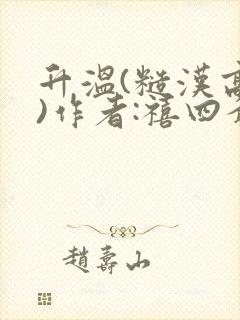 升温(糙漢高
)作者:禧四
趙壽山